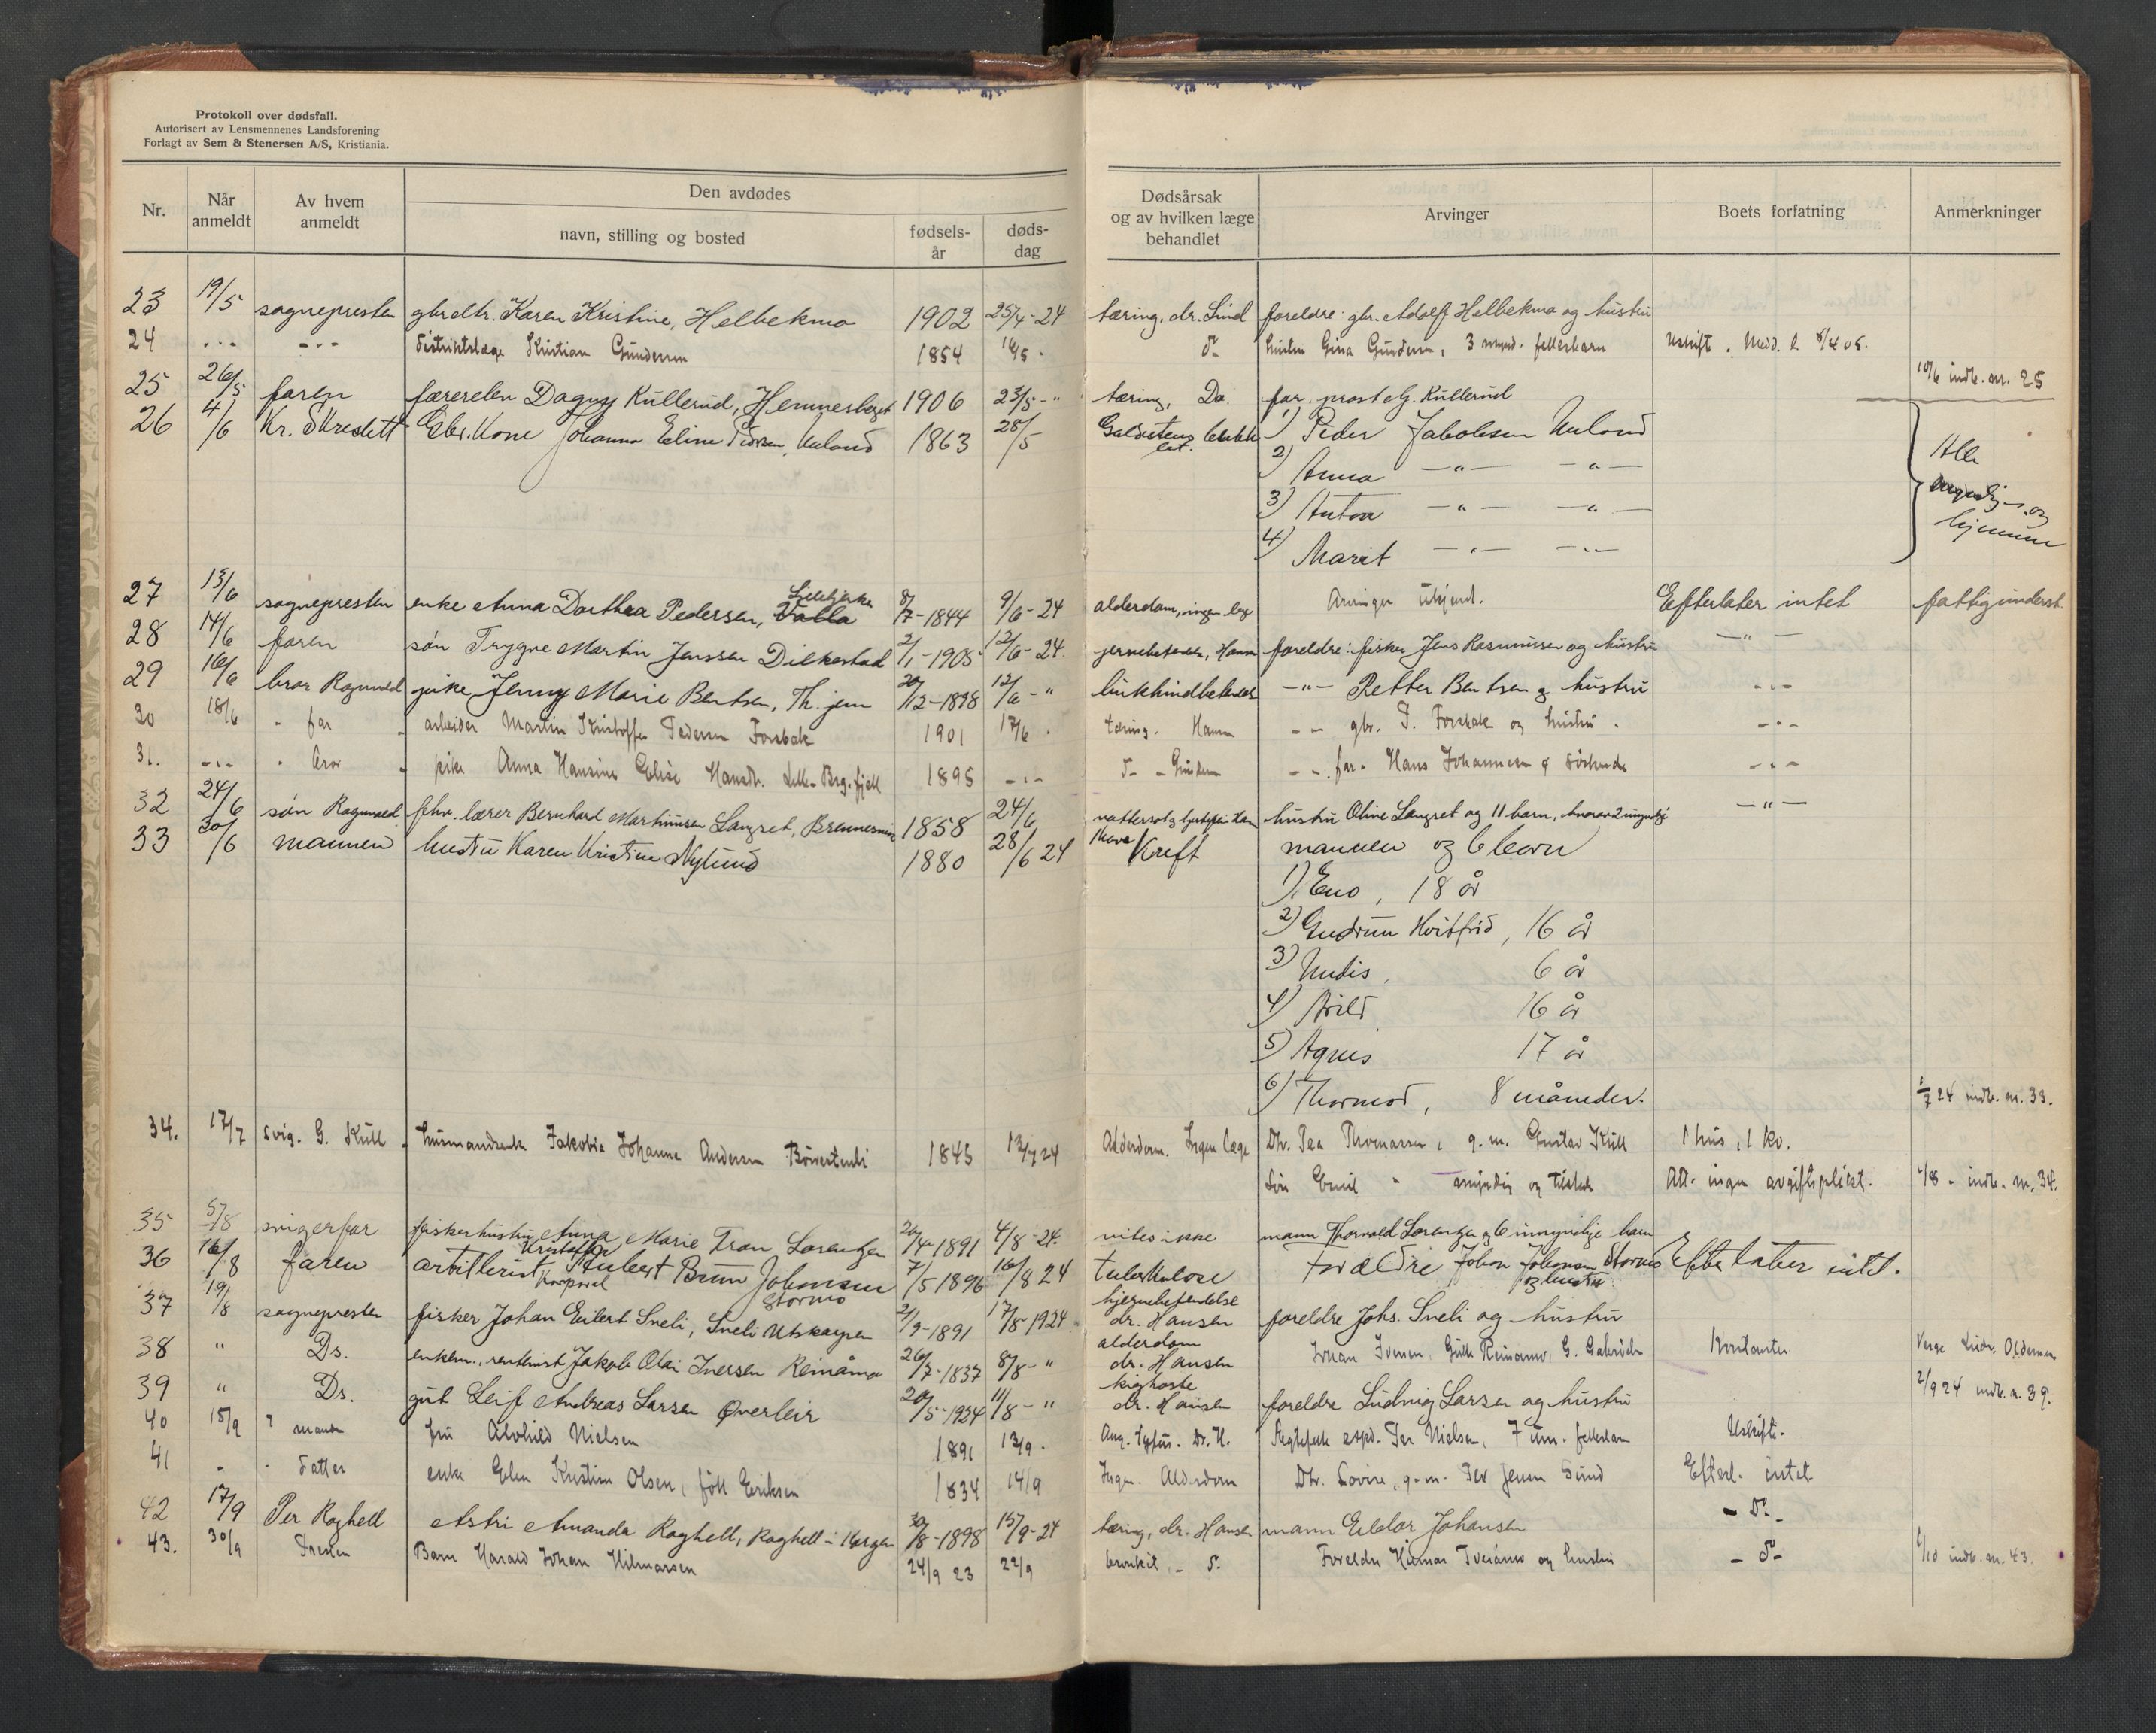 Protokoll over dødsfall.
Autorisert av Lensmennenes Landsforening
Forlagt av Sem & Stenersen A/S, Kristiania.
Nr. Når anmeldt Av hvem anmeldt Den avdødes navn, stilling og bosted fødsels-år døds-dag Dødsårsak og av hvilken læge behandlet Arvinger Boets forfatning Anmerkninger
23 19/5 sognepresten gbrdtr. Karen Kristine, Helbekmo 1902 25/4-24 tæring, dr. Lind foreldre: gbr. Adolf Helbekmo og hustru
24 -"- -"- Distriktslæge Kristian Gundersen 1854 16/5 - Do hustru Gina Gundersen, 3 mynd. fellesbarn Uskifte. Medd. l. 8/4 08.
10/6 indb. nr. 25
25 26/5 faren Dagny Kullerud, Hemnesberget 1906 23/5 - " tæring, Do. far. prost G. Kullerud
26 4/6 Kr. Skreslett Gbr. Kone Johanna Eline Pedersen, Uuland 1863 28/5 1) Peder Jakobsen Uuland
2) Anna -"- -"-
3) Anton -"- -"-
4) Marit -"- -"-
Alle
myndige og
hjemme
27 13/6 sognepresten enke Anna Dorthea Pedersen, Valla 8/7-1844 9/6-24 alderdom, ingen læge Arvinger ukjendt. Efterlater intet fattigunderst.
28 14/6 faren søn Trygve Martin Jenssen Dilkestad 2/1-1905 12/6-24. Hansen foreldre: fisker Jens Rasmussen og hustru -"-
29 16/6 bror Ragnvald pike Jenny Marie Bentsen, Th. jem 20/12-1898 12/6 - " bukhindebetendelse -"- Petter Bentsen og hustru -"-
30 18/6 " far arbeider Martin Kristoffer Pedersen Forsbak 1901 17/6 - tæring. Hansen -"- gbr. P. Forsbak og hustru. -"-
31. -"- " bror pike Anna Hansine Elise Hansdtr. Lille-Brg.fjell 1895 -"- Do - Gundersen -"- far. Hans Johannesen & søskende -"-
32 24/6 søn Ragnvald fhv. lærer Bernhard Martinusen Langset, Brennesvik 1858 24/6 hustru Oline Langset og 11 barn, hvorav 2 umyndig -"-
33 30/6 mannen hustru Karen Kristine Nylund 1880 28/6 24 Mave Kreft mannen og 6 barn
1) Eno, 18 år
2) Gudrun Hvitfrid, 16 år
3) Undis, 6 år
4) Arild 16 år
5) Agnes 17 år
6) Thormod, 8 måneder.
1/7 24 indb. nr. 33.
34. 17/7 svig. G. Kull husmandsenke Jakobia Johanna Andersen 1845 13/7 24 Alderdom. Ingen læge Dtr. Pea Thomassen, g. m. Gustav Kull 1 hus, 1 ko.
Søn Emil " myndig og tilstede Alt. ingen avgiftsplikt. 1/8 - indb. nr. 34.
35 5/8 svigerfar fiskerhustru Anna Marie Tran Lorentzen 20/4-1891 4/8-24. vites ikke mann Thorvald Lorentzen og 6 umyndige barn
36 16/8 faren artillerist Kristoffer Hubert Brun Johansen 7/5 1896 16/8 24 Tuberkulose Forældre Johan Johansen Stormo Efterlater intet.
korporal Stormo og hustru
37 19/8 sognepresten fisker Johan Eilert Sneli, Sneli Utskarpen 2/9-1891 17/8-1924 hjernebetendelse dr. Hansen foreldre Johs. Sneli og hustru
38 " Do. enkem., rentenist Jakob Olai Iversen Reinåmo 26/7-1837 8/8 - " alderdom dr. Hansen Johan Iversen, Gulle Reinamo, G. Gabrielsen Kontanter Verge Ludv. Oldernes
39 " Do. gut Leif Andreas Larsen Øverleir 20/5-1924 11/8 - " kighoste dr. Hansen foreldre Ludvig Larsen og hustru 2/9 24 indb. nr. 39.
40 15/9 " manden fru Alvhild Nielsen 1891 13/9 - Dr. H. Ektefelle exped. Per Nielsen, 7 um. fellesbarn Uskifte.
41 " " datter enke Elen Kristine Olsen, født Eriksen 1834 14/9 Ingen. Alderdom Dtr. Lovise, g. m. Per Jensen Sund Efterl. intet
42 17/9 Per Roghell Astri Amanda Roghell, Roghell i Korgen 30/8-1898 15/9-24 tæring, dr. Hansen mann Eldar Johansen - Do -
43. 30/9 Presten Barn Harald Johan Hilmarsen 24/9 23 22/9 bronkit, - Do Foreldre Hilmar Tveråmo og hustru - Do - 1/10 indb. nr. 43.